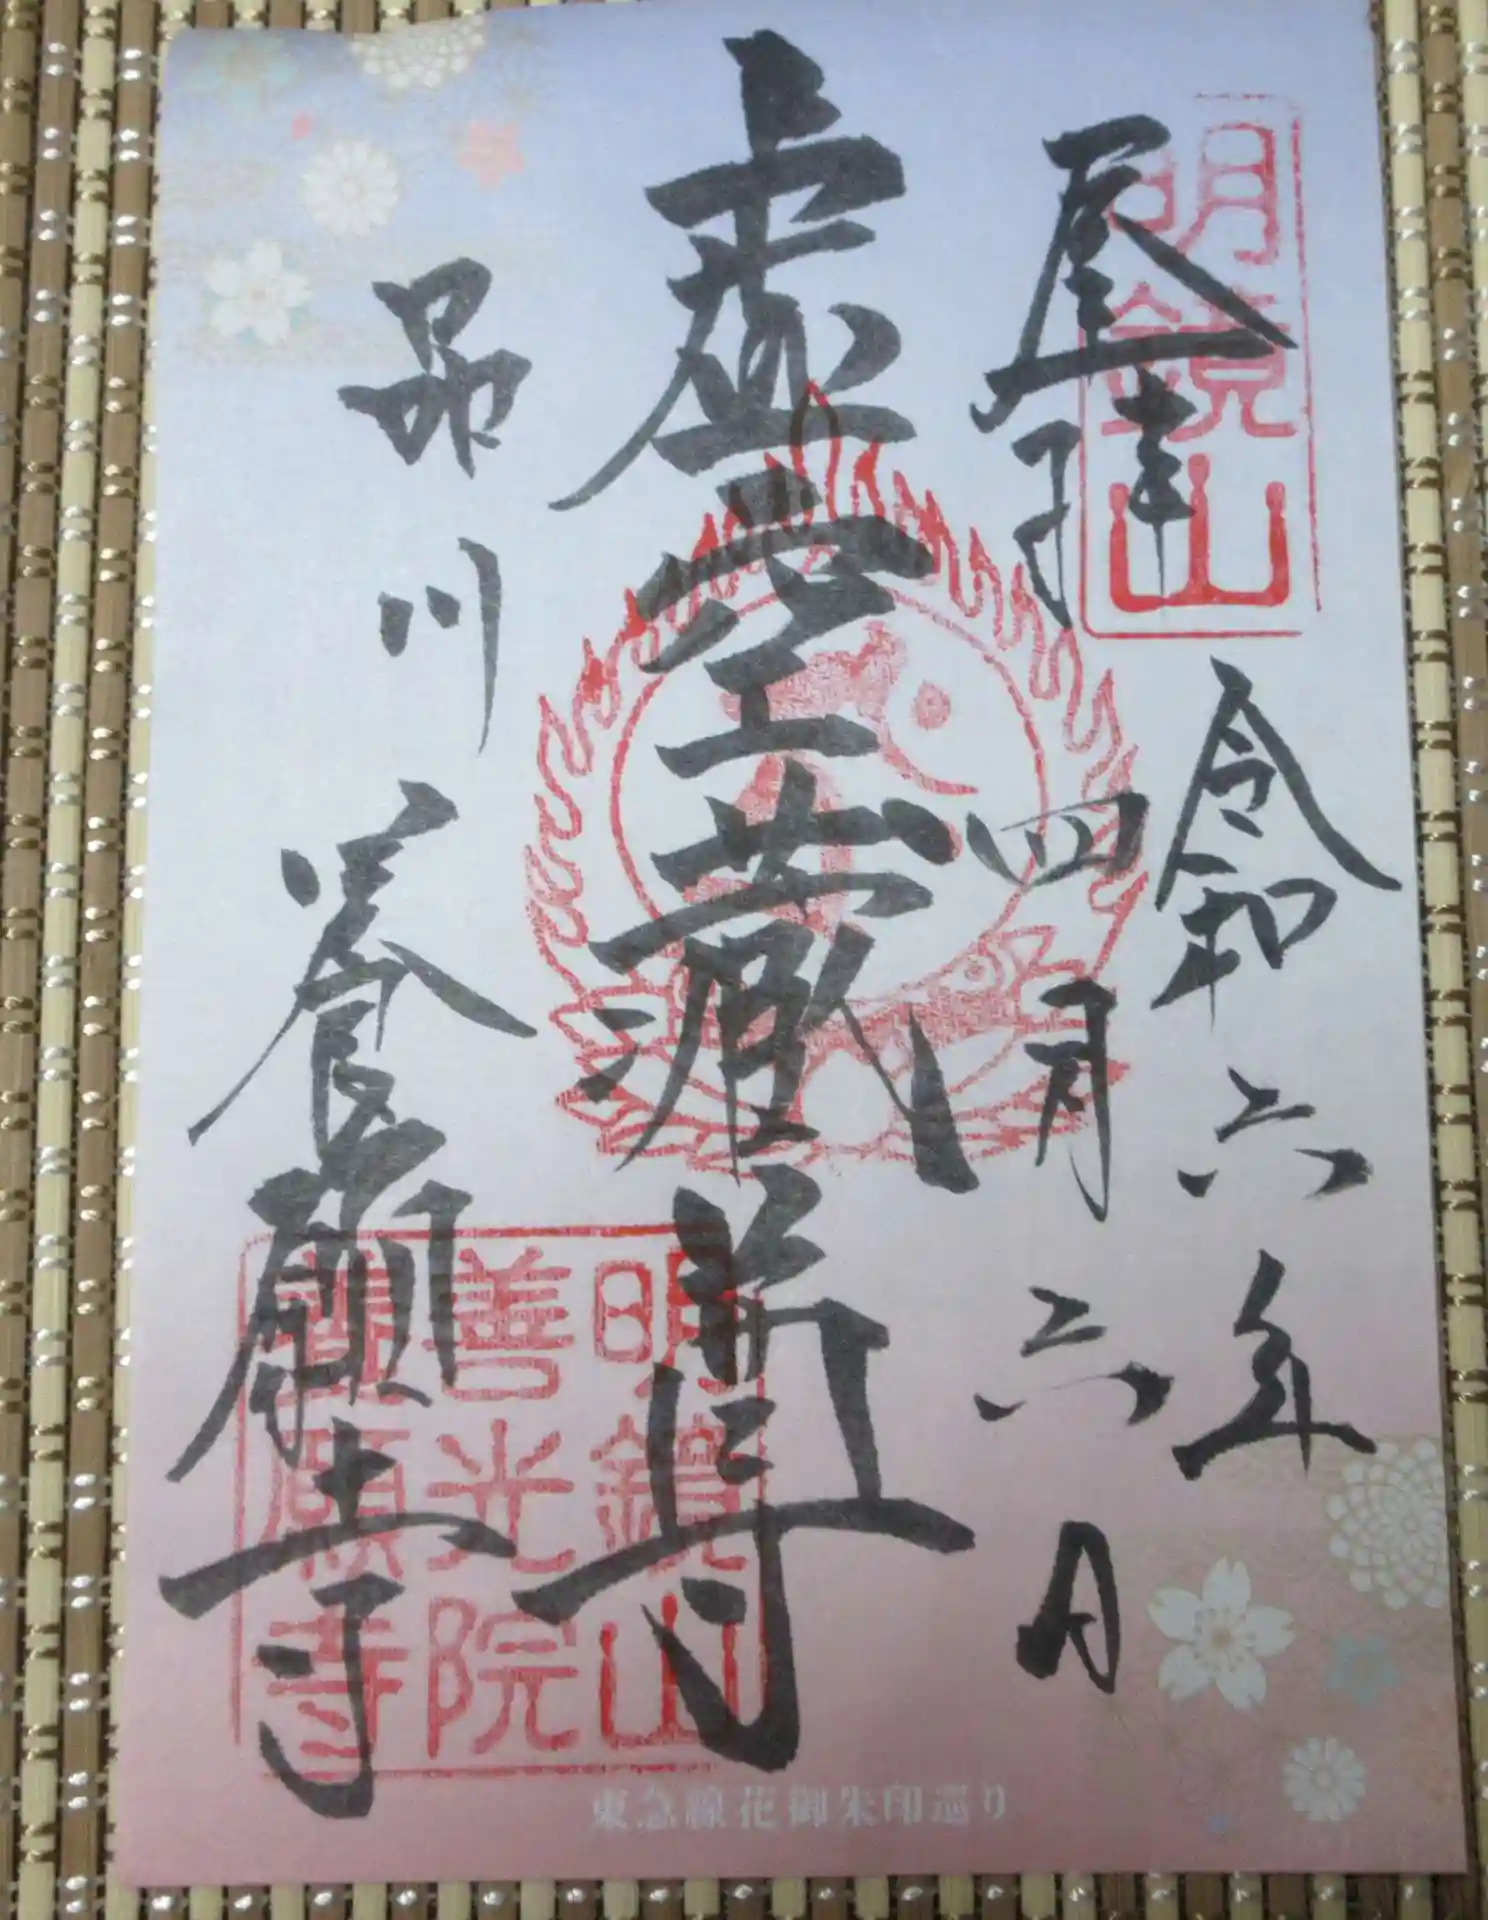 明鏡山
奉拝
令和六年
四月六日
虚空蔵尊
品川 養願寺
明鏡山
善光院
養願寺
東急線花御朱印巡り